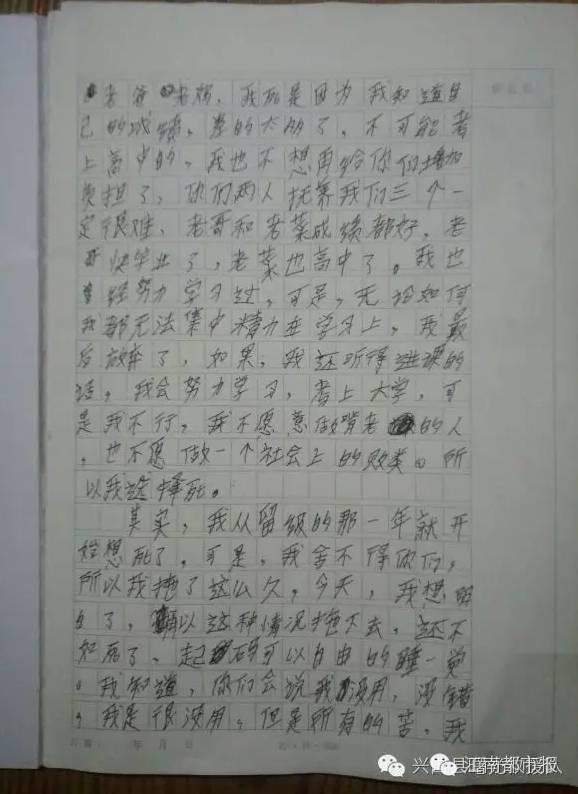 老爸老妈，我死是因为我知道自
己的成绩，差的太多了，不可能考
上高中的，我也不想再给你们增加
负担了，你们两人抚养我们三个一
定很难，老哥和老菜成绩都好，老
哥快毕业了，老菜也高中了。我也
曾经努力学习过，可是，无论如何
我都无法集中精力在学习上，我最
后放弃了，如果，我还听得进课的
话，我会努力学习，考上大学，可
是我不行，我不愿意做啃老的人
，也不愿做一个社会上的败类。所
以我选择死。
其实，我从留级的那一年就开
始想死了，可是，我舍不得你们，
所以我拖了这么久，今天，我想明
白了，以这种情况拖下去，还不
如死了，起码可以自由的睡一觉
。我知道，你们会说我没用，没错
，我是很没用，但是所有的苦，我
年 月 日
江南都市报